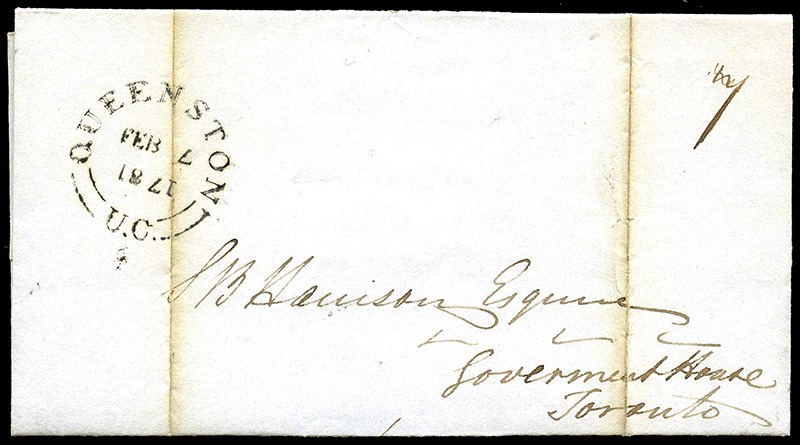 QUEENSTON
FEB 7
1841
U.C.
7
S B Harrison Esquire
Goverment House
Toronto